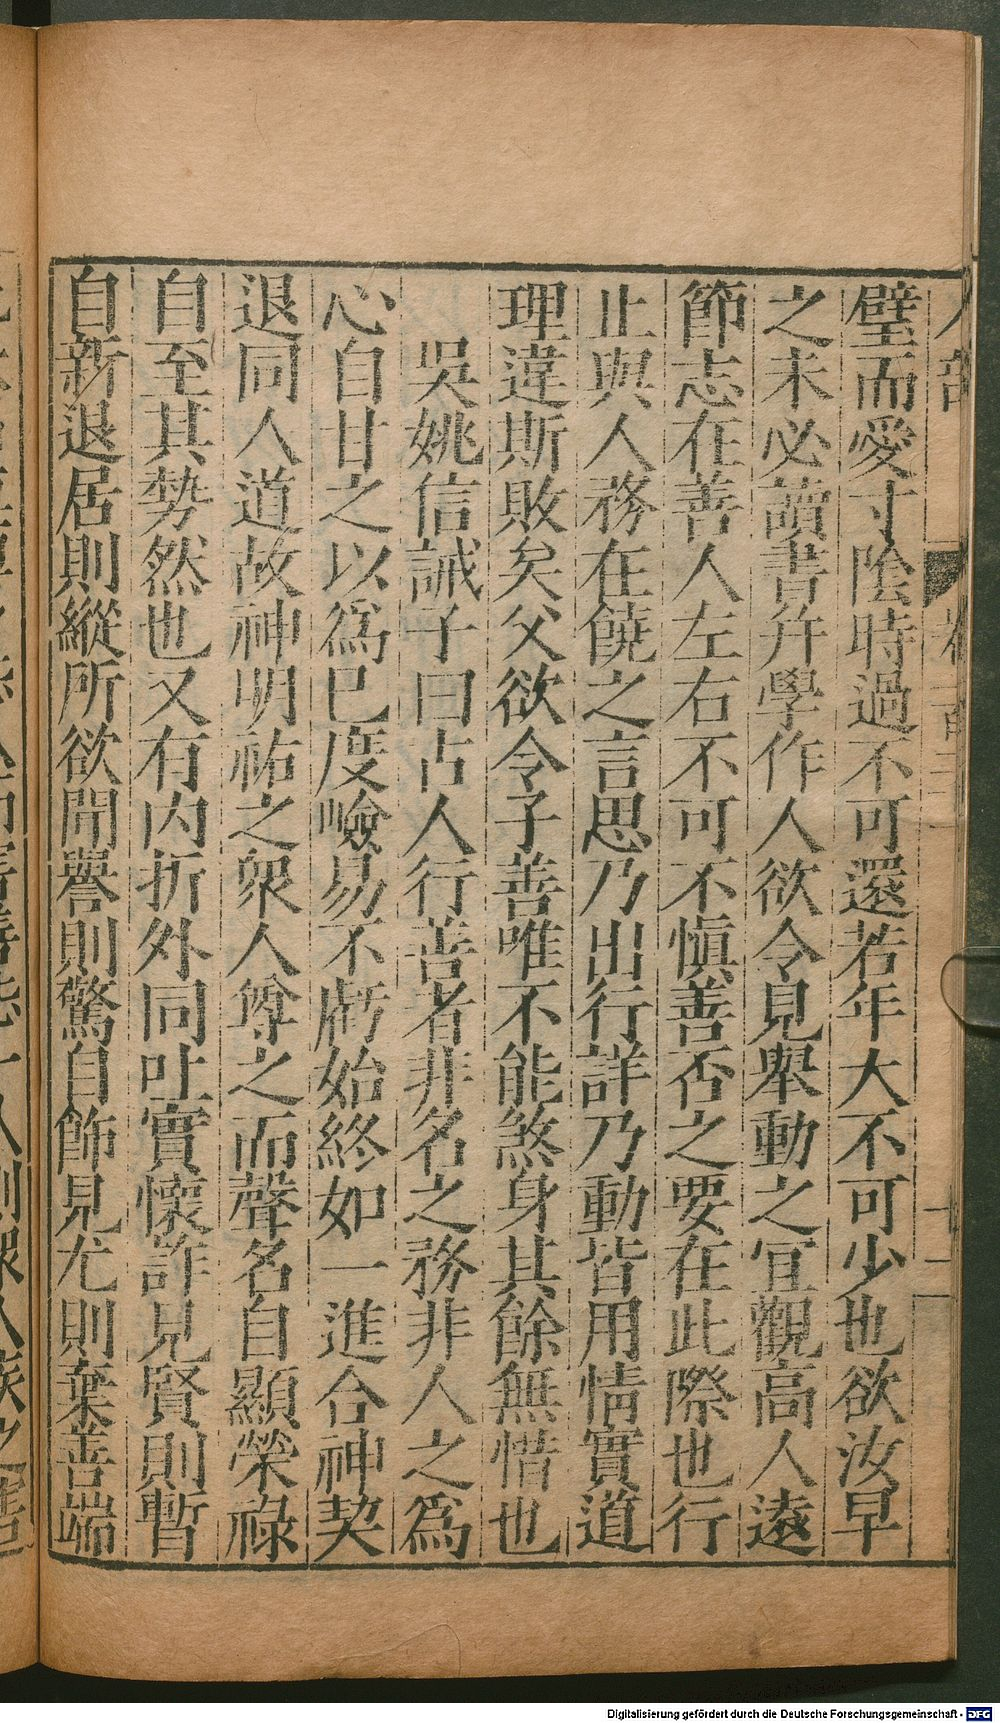 璧而愛寸陰時過不可還若年大不可少也欲汝早
之未必讀書幷學作人欲令見舉動之宜觀高人遠
節志在善人左右不可不愼善否之要在此際也行
止與人務在饒之言思乃出行詳乃動皆用情實道
理違斯敗矣父欲令子善唯不能煞身其餘無惜也
吳姚信誡子曰古人行善者非名之務非人之爲
心自甘之以爲巳度嶮易不虧始終如一進合神契
退同人道故神明祐之衆人尊之而聲名自顯榮祿
自至其勢然也又有内折外同吐實懷詐見賢則暫
自新退居則縱所欲聞譽則驚自飾見尤則棄善端
Digitalisierung gefördert durch die Deutsche Forschungsgemeinschaft - DFG